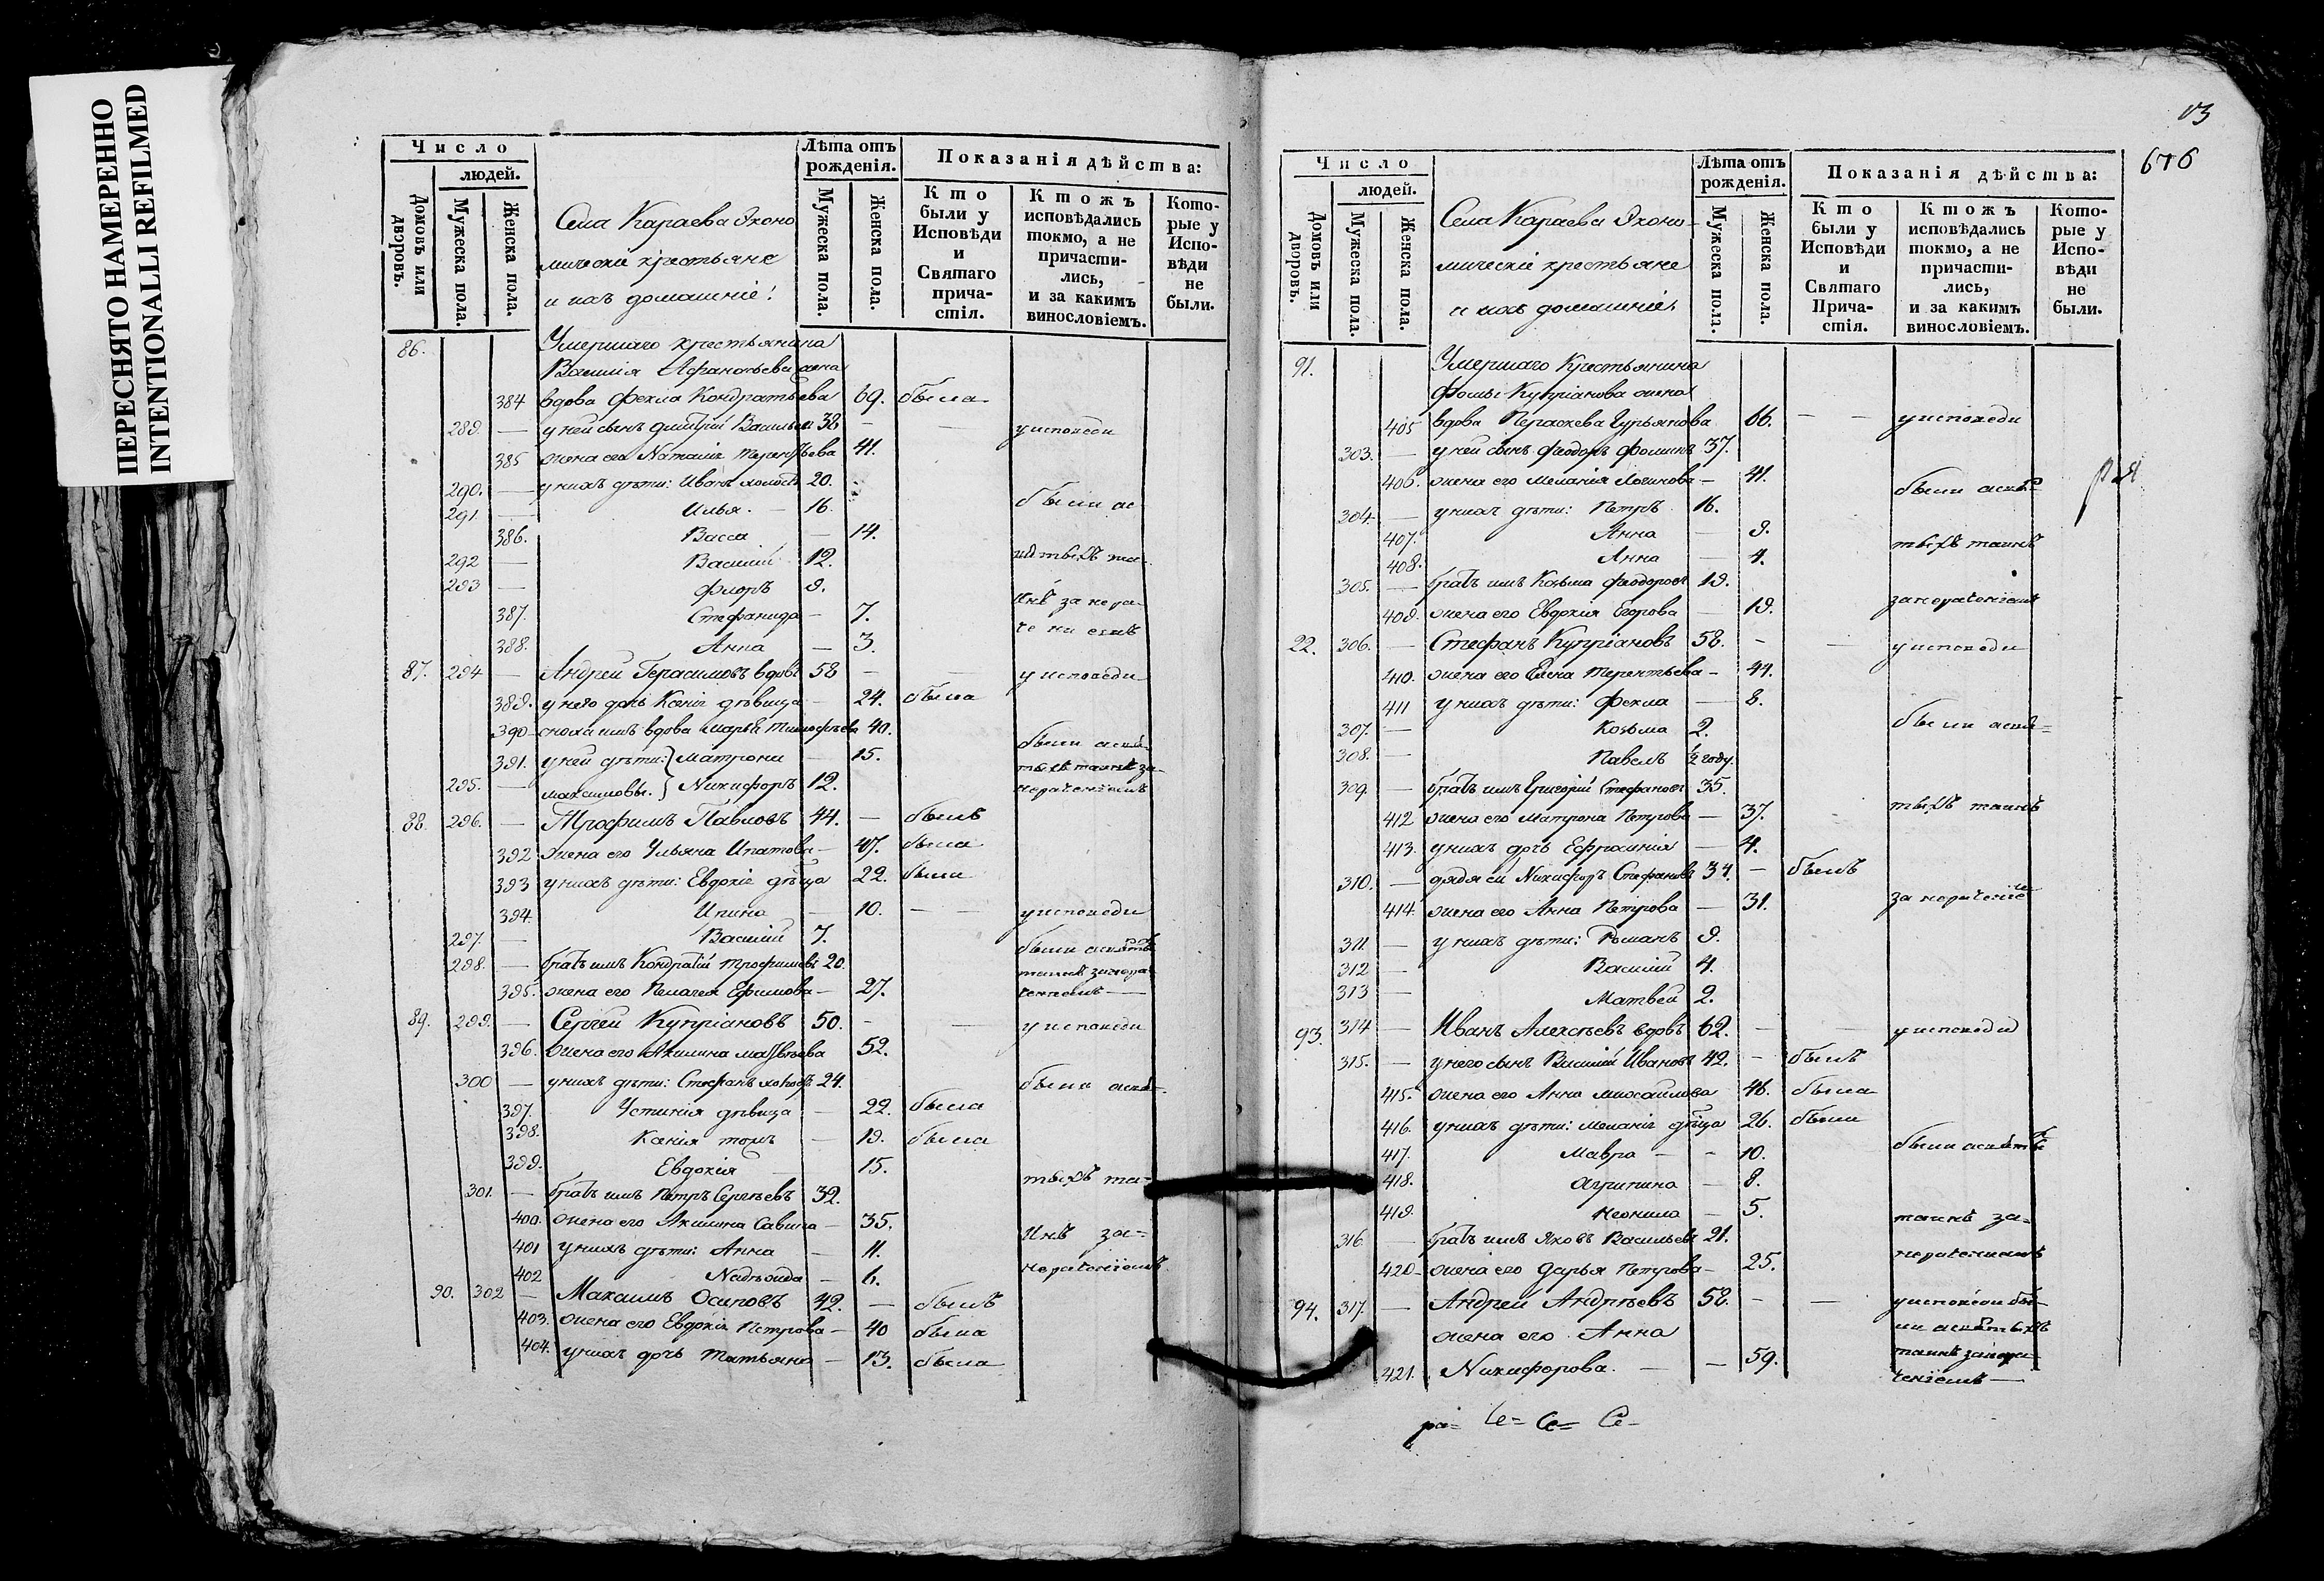 ПЕРЕСНЯТО НАМЕРЕННО
INTENTIONALLI REFILMED
Число
людей.
Домовъ или дворовъ.
Мужеска пола.
Женска пола.
Села Караева Эконо
мическiе крестьяне
и ихъ домашнiе:
Лѣта отъ рожденiя.
Мужеска пола.
Женска пола.
Показанiя дѣйства:
Кто были у Исповѣди и Святаго причастiя.
Ктожъ исповѣдались токмо, а не причасти-лись, и за какимъ винословiемъ.
Кото-рые у Испо-вѣди не были.
86. Умершаго крестьянина
Василiя Афанасьева жена
384 вдова Фекла Кондратьева 69. была
289. — у ней сынъ Димитрiй Васильев 38 — — у исповеди
385 жена его Наталiя Терентьева 41.
290. — у нихъ дѣти: Иванъ холостъ 20.
291. — Илья. — 16. были ас
386. Васса — 14.
292 — Василiй 12.
293 — Флоръ 9.
387. Стефанида — 7.
388. Анна — 3.
87. 294 — Андрей Герасимовъ вдовъ 58 — — у исповеди
389. у него дочь Ксенiя дѣвица — 24. была
390 сноха имъ вдова Марья Тимофѣева 40.
391. у ней дѣти: Матрона — 15.
295. — Максимовы. Никифоръ 12.
88. 296. — Трофимъ Павловъ 44. — былъ
392 жена его Ульяна Ипатова — 47. была
393 у нихъ дѣти: Евдокiя дѣвица 22. была
394. Ирина — 10. — — у исповеди
297. — Василiй 7.
298. — братъ имъ Кондратiй Трофимовъ 20.
395. жена его Пелагея Ефимова — 27.
89. 299. — Сергей Купрiановъ 50. — — у исповеди
396. жена его Акилина Матвѣева 52.
300 — у нихъ дѣти: Стефанъ холостъ 24.
397. Устинiя дѣвица — 22. была
398. Ксенiя тожъ — 19. была
399. Евдокiя — 15.
301. — братъ имъ Петръ Сергѣевъ 32.
400. жена его Акилина Савина — 35.
401 у нихъ дѣти: Анна — 11.
402 Надѣжда — 6.
90. 302 — Максимъ Осиповъ 42. — былъ
403. жена его Евдокiя Петрова — 40 была
404. у нихъ дочь Татьяна — 13. была
676
Число
людей.
Домовъ или дворовъ.
Мужеска пола.
Женска пола.
Села Караева Эконо-
мическiе крестьяне
и ихъ домашнiе.
Лѣта отъ рожденiя.
Мужеска пола.
Женска пола.
Показанiя дѣйства:
Кто были у Исповѣди и Святаго Прича-стiя.
Ктожъ исповѣдались токмо, а не причасти-лись, и за какимъ винословiемъ.
Кото-рые у Испо-вѣди не были.
91. Умершаго Крестьянина
Фомы Купрiанова жена
405 вдова Параскева Гурьянова 66. — — у исповеди
303. — у ней сынъ Феодоръ Фоминъ 37.
406. жена его Меланiя Логинова — 41.
304. — у нихъ дѣти: Петръ 16.
407. Анна — 9. тыхъ таинъ
408. Анна — 4.
305. — братъ имъ Козьма Феодоровъ 19.
409. жена его Евдокiя Егорова — 19. за нераченiемъ
22. 306. — Стефанъ Купрiановъ 58. — — у исповеди
410. жена его Елена Терентьева — 44.
411 у нихъ дѣти: Фекла — 8.
307. — Козьма 2.
308. — Павелъ ½ году.
309. — братъ имъ Григорiй Стефановъ 35.
412 жена его Матрона Петрова — 37. тыхъ таинъ
413. у нихъ дочь Ефросинiя — 4.
310. — дядя ей Никифоръ Стефановъ 34. — былъ
414. жена его Анна Петрова — 31.
311. — у нихъ дѣти: Романъ 9.
312 — Василiй 4.
313 — Матвей 2.
93. 314 — Иванъ Алексѣевъ вдовъ 62. — — у исповеди
315. — у него сынъ Василiй Ивановъ 42. — былъ
415. жена его Анна Михайлова 46. была
416. у нихъ дѣти: Меланiя дѣвица 26. была
417. Мавра — — 10.
418. Агрипина — 8.
419. Неонила — 5. таинъ за-
316 — братъ имъ Яковъ Васильевъ 21.
420 — жена его Дарья Петрова — 25.
94. 317. — Андрей Андрѣевъ 58. — — у исповеди бы-
жена его Анна
421. Никифорова. — — 59.
ченiемъ —